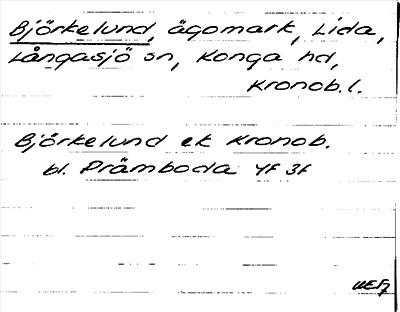 Björkelund, ägomark, Lida,
Långasjö sn, Konga hd,
Kronob. l.
Björkelund ek Kronob.
bl. Prämboda 4f 3f